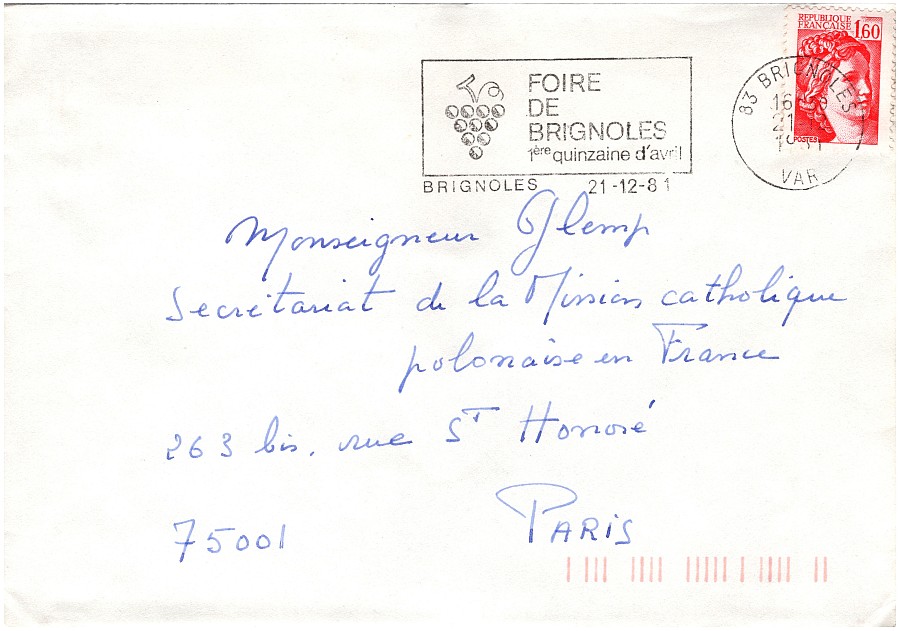 REPUBLIQUE
FRANÇAISE 1,60
POSTES
FOIRE
DE
BRIGNOLES
1ère quinzaine d'avril
BRIGNOLES 21-12-81
83 BRIGNOLES
VAR
Monseigneur Glemp
Secrétariat de la Mission catholique
polonaise en France
263 bis, rue ST Honoré
75001 PARIS